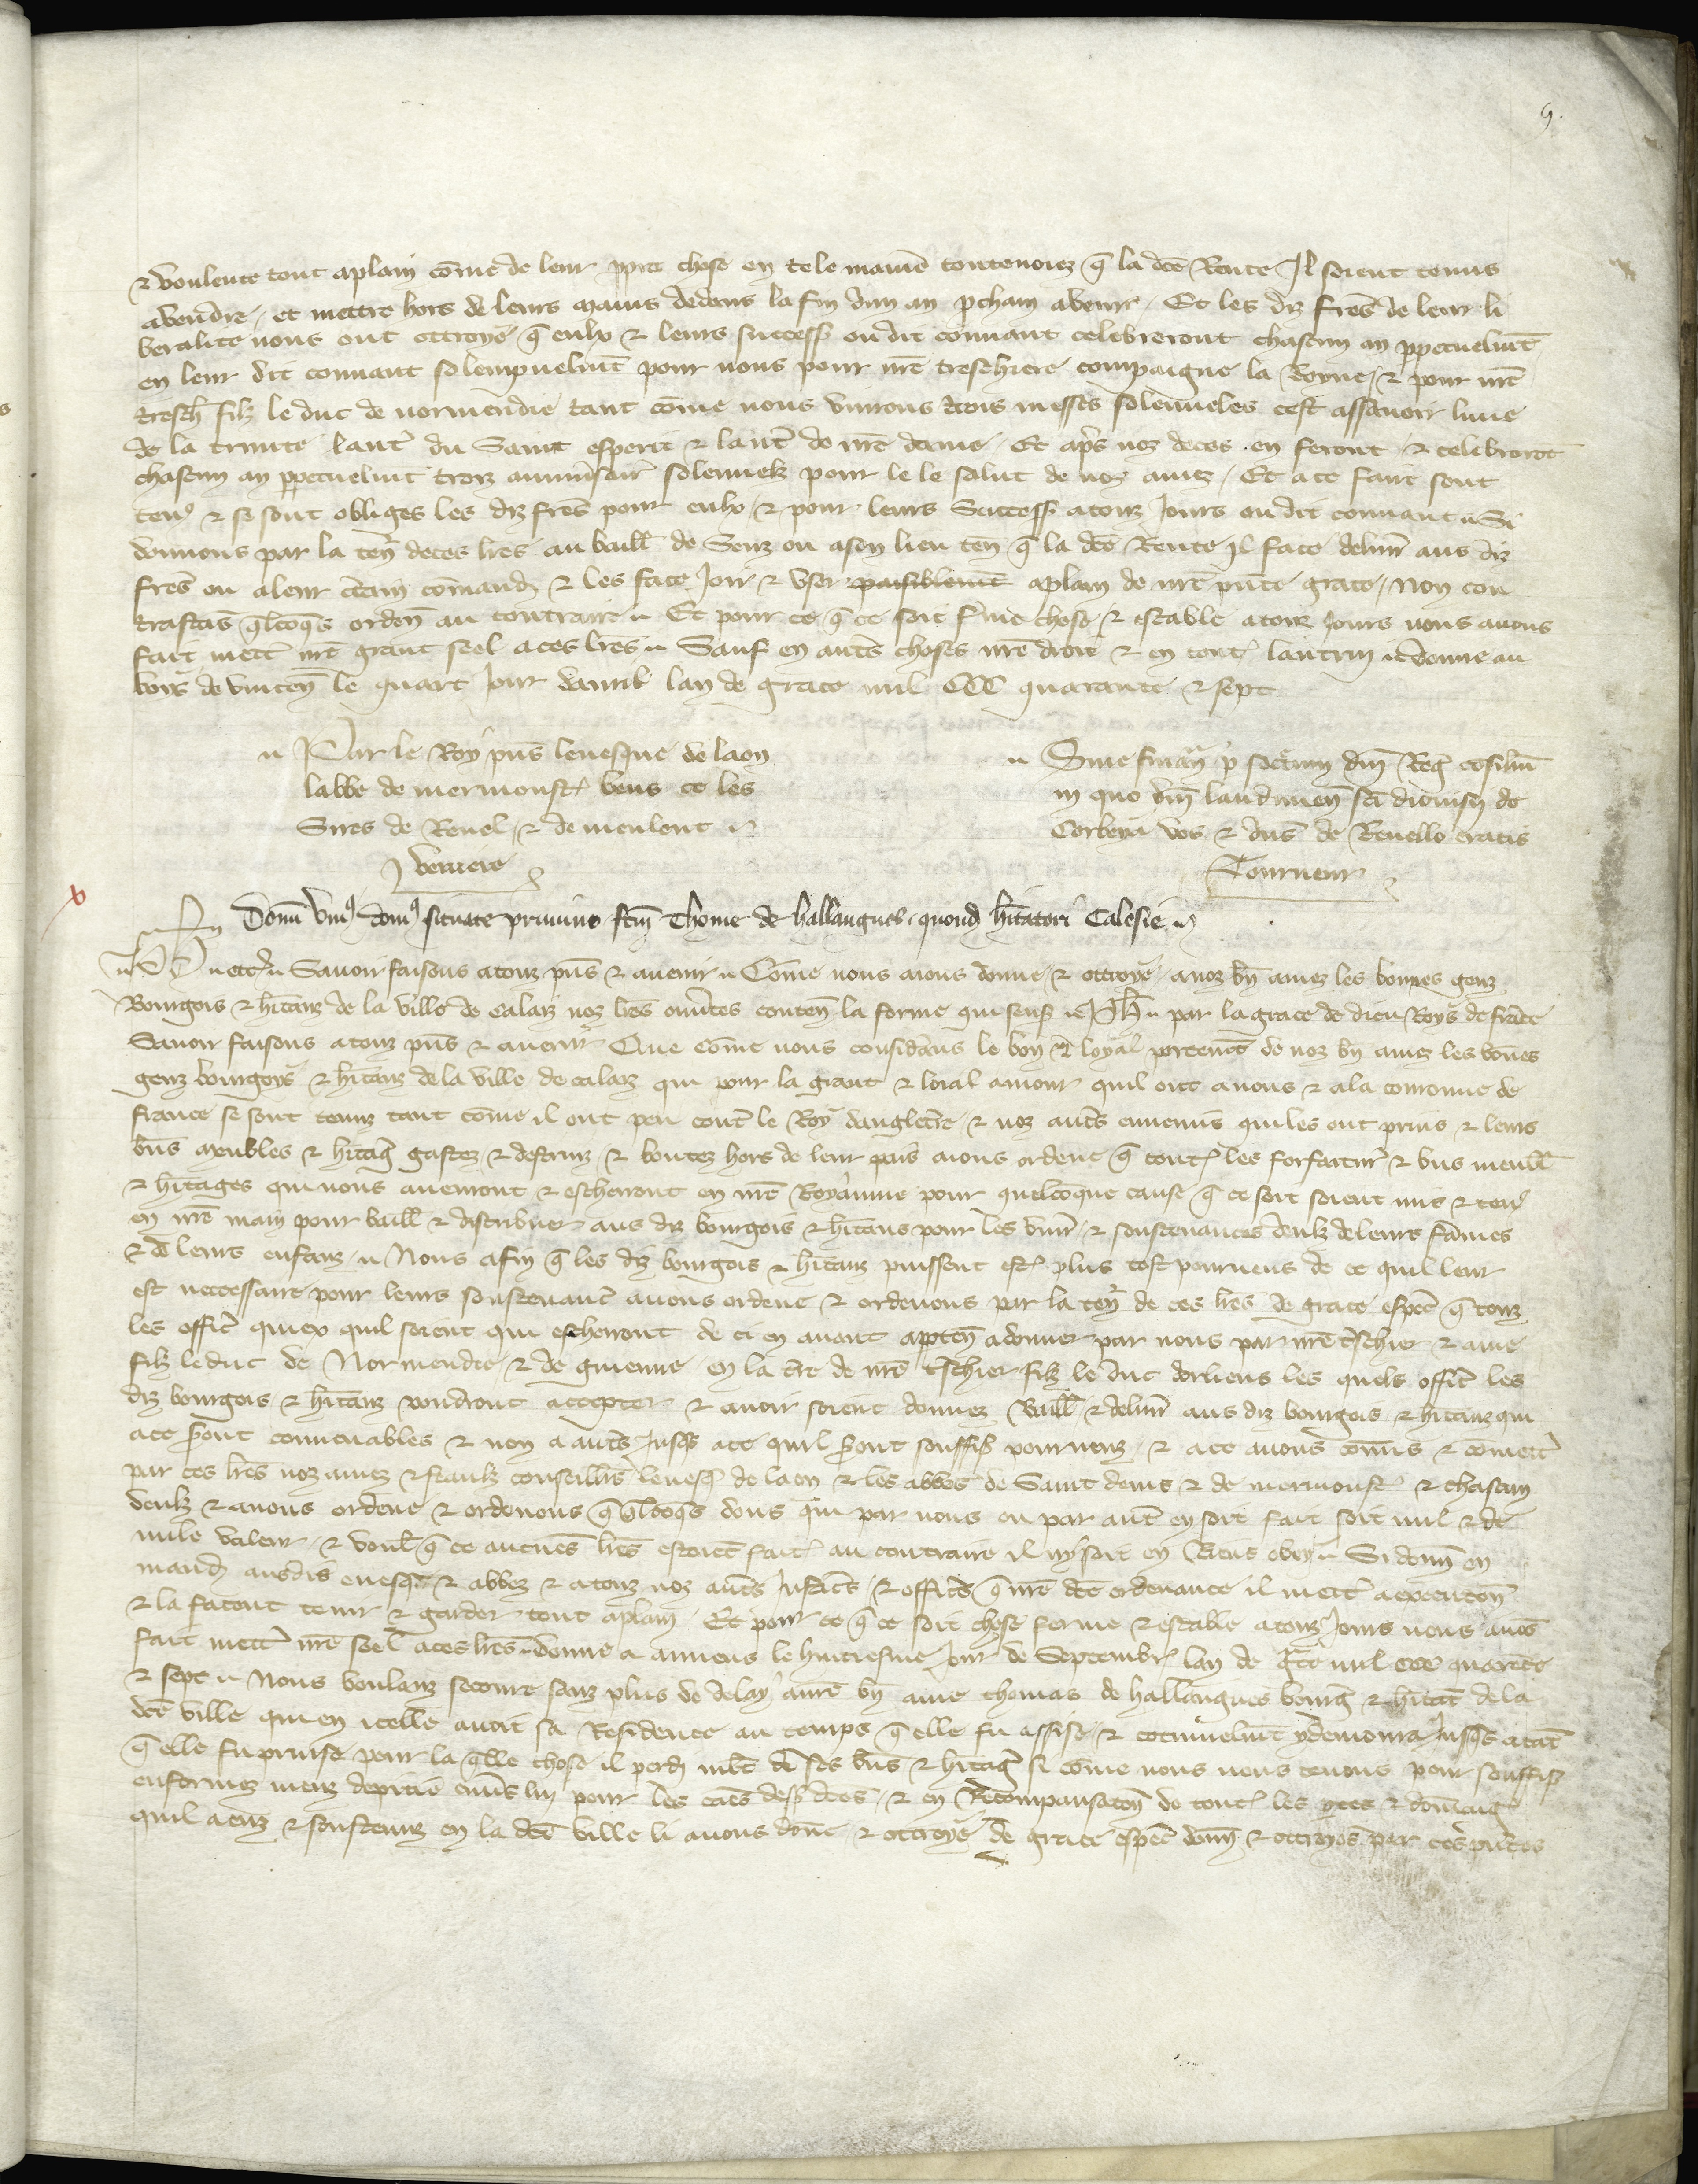 9.
& voulente tout aplain cōme de leur ppre chose en tele maniē toutevoiez q̄ la dcē Rente Il soient tenus
avendre / et mettre hors de leurs mains dedens la fin dun an pchain avenir / Et les diz frēs de leur li
beralite nous ont ottroye q̄ eulx & leurs success ou dit couvant celebreront chascun an ppetuelmt
en leur dit couvant solempnelmt pour nous pour nrē treschiere compaigne la Royne / & pour nrē
tresch filz le duc de normendie tant cōme nous vivrons trois messes solenneles cest assavoir lune
de la trinite laut' du Saint esperit & laut' de nrē dame / Et apres noz deces en feront / & celebrerōt
chascun an ppetuelmt trois anniversair solennelz pour le le salut de noz ames / Et a ce faire sont
ten' & se sont obliges les diz frēs pour eulx / & pour leurs Success a touz Jours ou dit couvant Si
donnons par la ten de ces lrēs au baill de Senz ou a son lieu ten q̄ la dcē Rente Il face delivr aus diz
frēs ou a leur ctain cōmand & les face Joir & user paisiblemt aplain de nrē pnte grace / Non con
trastās qlcoqs orden au contraire Et pour ce q̄ ce soit ferme chose / & estable a touz Jours nous avons
fait mett nrē grant seel a ces lrēs Sauf en autēs choses nrē droit & en tout lautrui donne au
bois de vincen le quart Jour davril lan de grace mil CCC quarante & sept
Par le Roy pns levesque de laon
labbe de mermoust vous & les
Sires de Revel / & de meulent
J verriere
Sine financ p secretum dni Reg consilium
in quo dni laudunen sci dionisii de
Corbeya vos & dns de Revello eratis
Tourneur
Donū uni' dom' situate pruuins fcm Thome de hallangues quond hitatori Calesie
Ph etc Savoir faisons a touz pns & avenir Cōme nous aions donne / & ottroye a noz bn amez les bonnes genz
Bourgois & hitanz de la ville de Calaiz noz lrēs ouvtes conten la forme qui sensuit Ph par la grace de dieu Roys de france
Savoir faisons a touz pns & avenir Que cōme nous considans le bon & loyal portemt de noz bn amez les bōnes
genz bourgoys & hitanz de la ville de calaiz qui pour la grant & loial amour quil ont a nous & a la couronne de
france se sont tenuz tant cōme il ont peu cont le Roy danglet're / & noz auts ennemis qui les ont prins & leurs
biens meubles & hitag gastez & destruiz & boutez hors de leur pais aions ordene q̄ tout les forfaitur & bns meubl
& hitages qui nous avenront & escherront en nrē Royaume pour quelcōque cause q̄ ce soit soient mis & ten'
en nrē main pour baill & distribuer aus diz bourgois & hitans pour les vivre / & soustenances deulz de leurs fāmes
& de leurs enfanz Nous afin q̄ les diz bourgois & hitanz puissent est plus tost pourveus de ce quil leur
est necessaire pour leurs soustenanc avons ordene & ordenons par la ten de ces lrēs de grace espec q̄ touz
les offic quiex quil soient qui escherront de ci en avant apptēn a donner par nous par nrē tschier & ame
filz le duc de Normendie & de guienne en la tre de nrē tschier filz le duc dorliens les quels offic les
diz bourgois & hitanz voudront accepter & avoir soient donnez Baill & delivr aus diz bourgois & hitanz qui
a ce sont convenables & non a auts Jusqs a ce quil sont souffis pourveuz & a ce avons cōmis & cōmett
par ces lrēs noz amez & feaulz conseillrs levesq de laon & les abbes de Saint denis & de mermoust & chascun
deulz & avons ordene & ordenons q̄ qlcoqs dons qui par nous ou par aut en soit fait soit nul & de
nulle valeur & voul q̄ ce aucunes lrēs estoiēt fait au contraire il ny soit en Riens obey Si donn en
mand ausdis evesqs & abbez & a touz noz auts Justics & officrs q̄ nrē dcē ordenance il mett a execution
& la facent tenir & garder tout aplain Et pour ce q̄ ce soit chose ferme & estable a touz Jours nous avōs
fait mett nrē seel a ces lrēs donne a amiens le huitiesme Jour de Septembr lan de gce mil CCC quarāte
& sept Nous voulanz secourre senz plus de delay a nrē bn ame thomas de hallangues bourg & hitāt de la
dcē ville qui en icelle avoit sa Residence au temps q̄ elle fu assise & cōtinuelmt y demoura Jusqs a tāt
q̄ elle fu prinse pour la qlle chose il perdi mlt de ses bns & hitag si cōme nous nous tenons pour souffis
enformez meuz de pitie envs luy pour les causes dess dces & en Recompansation de tout les ptes & dōmag
quil a euz & soustenuz en la dcē ville li avons dōne & ottroye de grace espec donn & ottroyōs par ces pntes